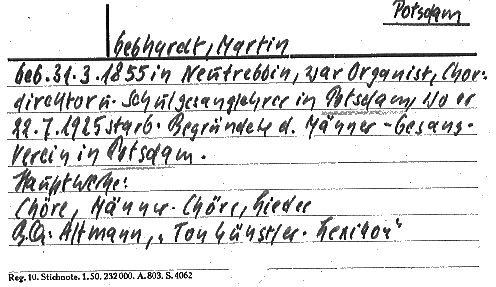 Potsdam
Gebhardt, Martin
geb. 31.3.1855 in Neutrebbin, war Organist, Chor-
direktor u. Schulgesanglehrer in Potsdam, wo er
22.7.1925 starb. Begründete d. Männer-Gesang-
Verein in Potsdam.
Hauptwerke:
Chöre, Männer-Chöre, Lieder
B.Q.: Altmann, „Tonkünstler-Lexikon“
Reg. 10. Stichnote. 1.50. 232000. A. 803. S. 4062